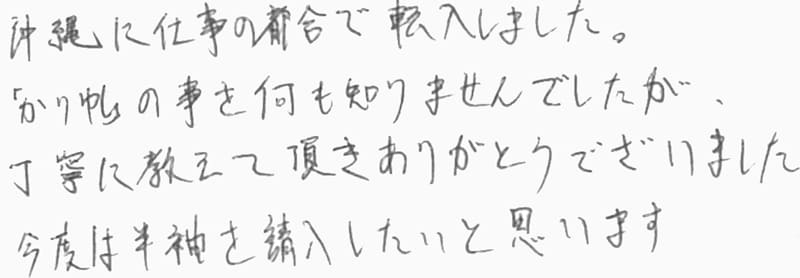 沖縄に仕事の都合で転入しました。
「かりゆし」の事を何も知りませんでしたが、
丁寧に教えて頂きありがとうございました
今度は半袖を購入したいと思います